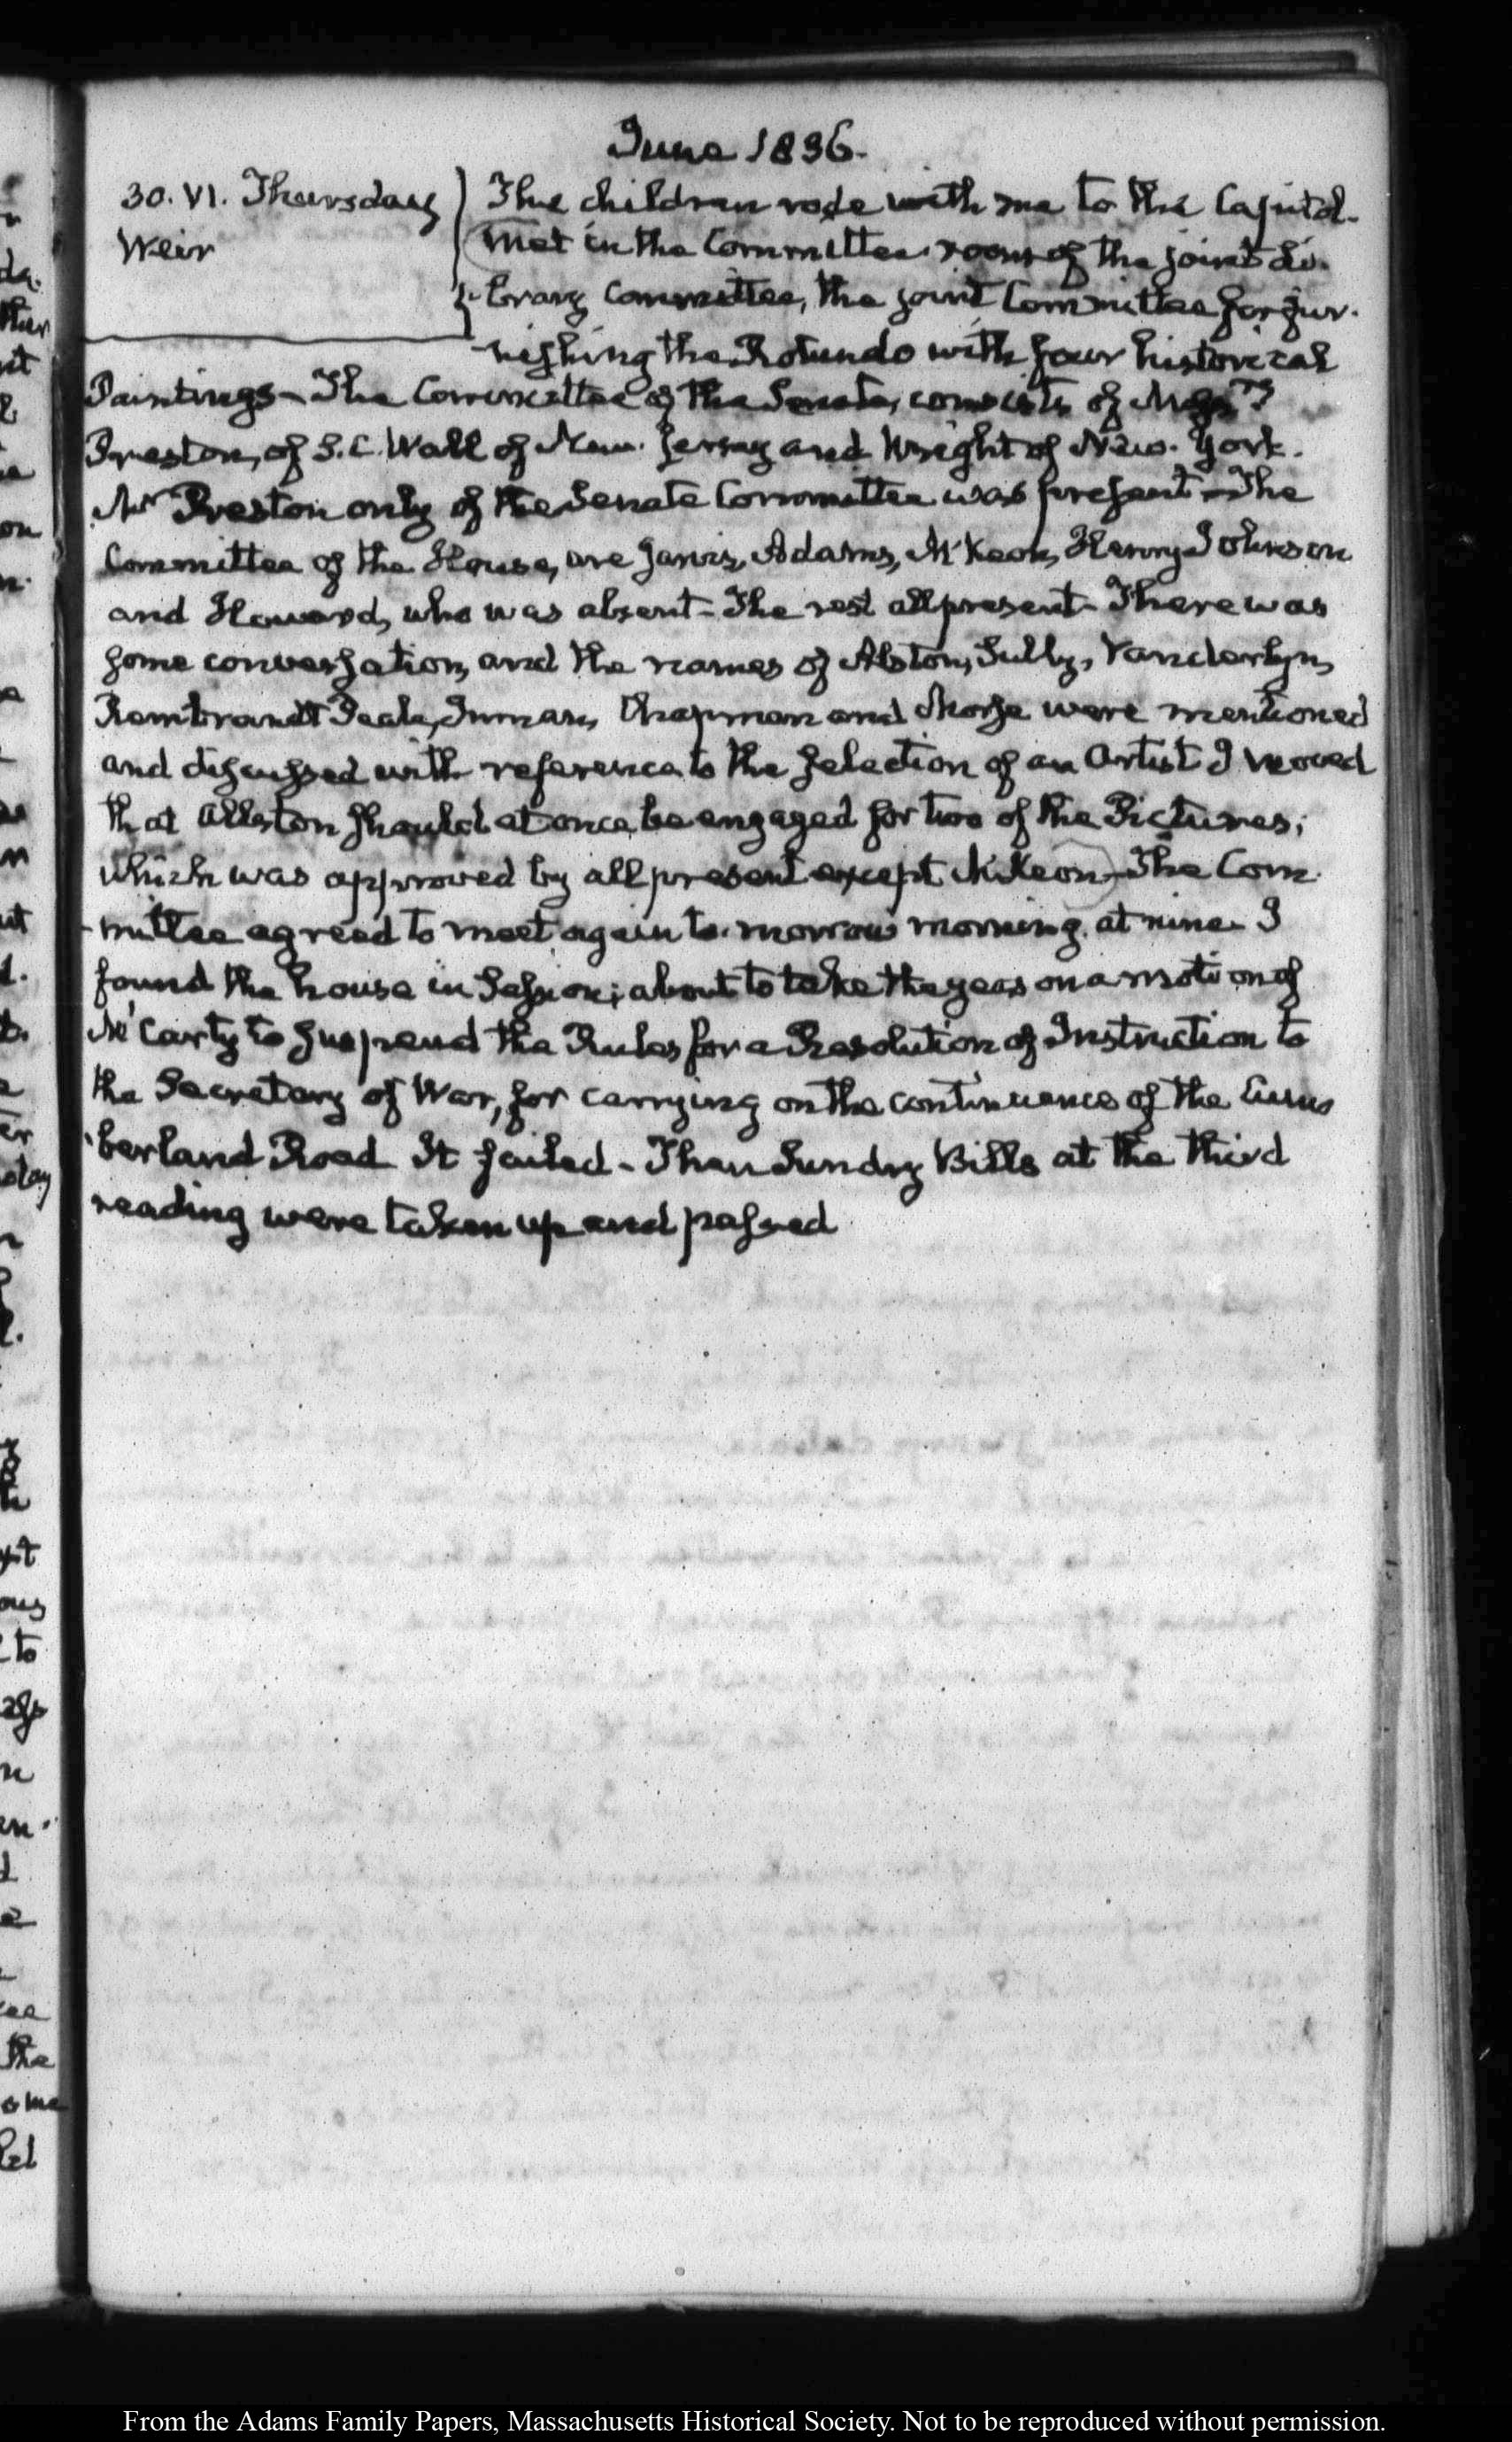 June 1836.
30. VI. Thursday
Weir
The children rode with me to the Capitol.
Met in the Committee room of the joint Li-
-brary Committee, the joint Committee for fur-
-nishing the Rotundo with four historical
Paintings - The Committee of the Senate, consists of Messrs
Preston, of S.C. Wall of New-Jersey and Wright of New-York.
Mr Preston only of the Senate Committee was present - The
Committee of the House, are Jarvis, Adams, McKeon, Henry Johnson
and Howard, who was absent - The rest all present - There was
some conversation, and the names of Alston, Sully, Vanderlyn,
Rembrandt Peale, Inman, Chapman and Morse were mentioned
and discussed with reference to the selection of an Artist I moved
that Allston should at once be engaged for two of the Pictures;
which was approved by all present except McKeon - The Com-
-mittee agreed to meet again to-morrow morning at nine - I
found the house in Session; about to take the yeas on a motion of
McCarty to suspend the Rules for a Resolution of Instruction to
the Secretary of War, for carrying on the continuance of the Cum
-berland Road It failed - Then Sundry Bills at the third
reading were taken up and passed
From the Adams Family Papers, Massachusetts Historical Society. Not to be reproduced without permission.